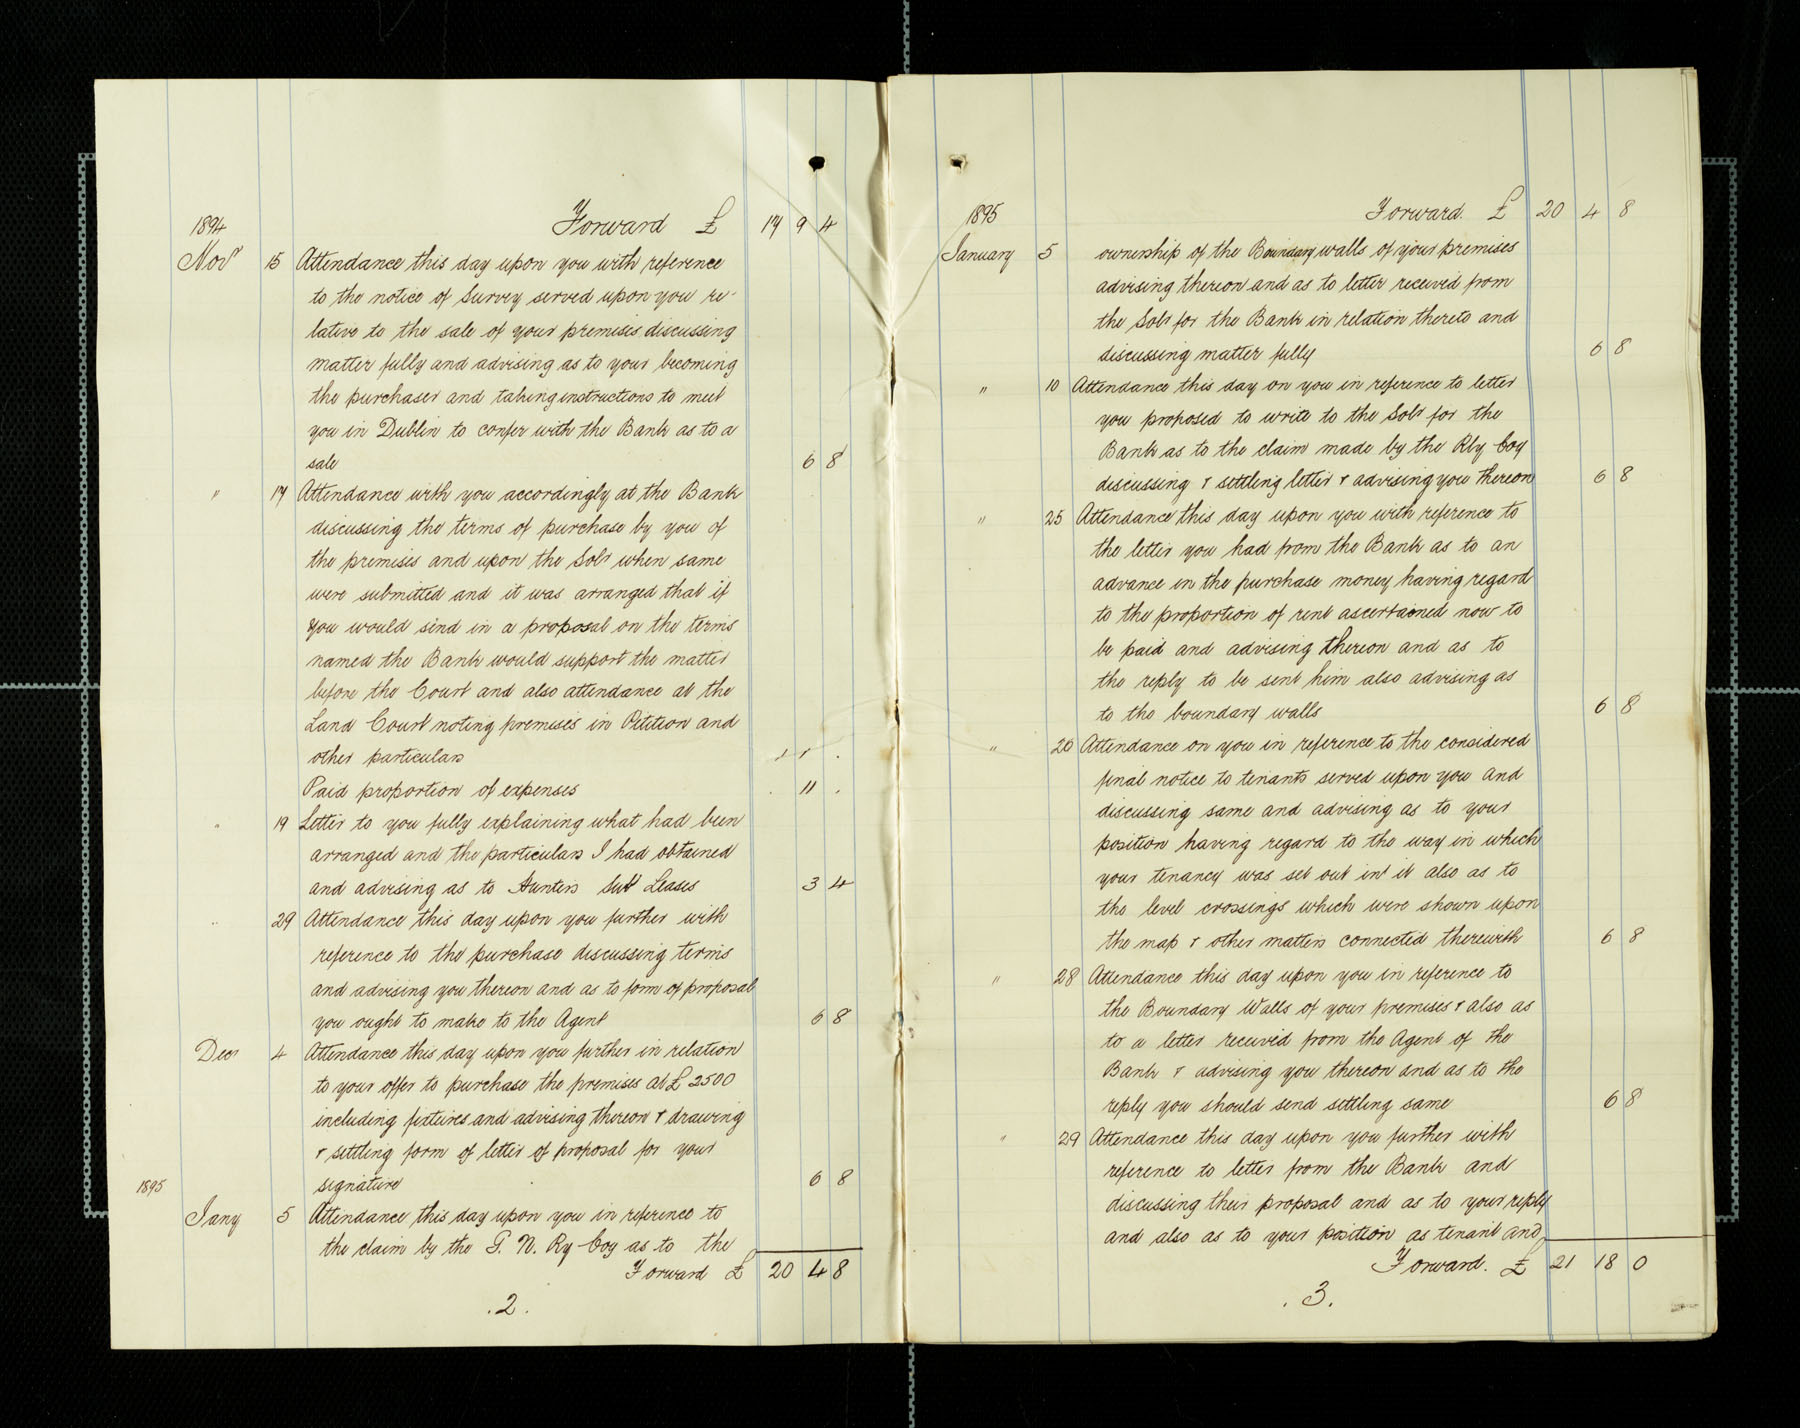 1894 Forward £ 17 9 4
Novr 15 Attendance this day upon you with reference
to the notice of Survey served upon you re-
lative to the sale of your premises discussing
matter fully and advising as to your becoming
the purchaser and taking instructions to meet
you in Dublin to confer with the Bank as to a
sale 6 8
" 17 Attendance with you accordingly at the Bank
discussing the terms of purchase by you of
the premises and upon the Solr when same
were submitted and it was arranged that if
you would send in a proposal on the terms
named the Bank would support the matter
before the Court and also attendance at the
Land Court noting premises in Petition and
other particulars 1 1 .
Paid proportion of expenses . 11 .
" 19 Letter to you fully explaining what had been
arranged and the particulars I had obtained
and advising as to Hunters Sub Leases 3 4
" 29 Attendance this day upon you further with
reference to the purchase discussing terms
and advising you thereon and as to form of proposal
you ought to make to the Agent 6 8
Decr 4 Attendance this day upon you further in relation
to your offer to purchase the premises at £2500
including fixtures and advising thereon & drawing
& settling form of letter of proposal for your
signature 6 8
1895
Jany 5 Attendance this day upon you in reference to
the claim by the G. N. Ry Coy as to the
Forward £ 20 4 8
.2.
1895 Forward. £ 20 4 8
January 5 ownership of the Boundary walls of your premises
advising thereon and as to letter received from
the Solr for the Bank in relation thereto and
discussing matter fully 6 8
" 10 Attendance this day on you in reference to letter
you proposed to write to the Solr for the
Bank as to the claim made by the Rly Coy
discussing & settling letter & advising you thereon 6 8
" 25 Attendance this day upon you with reference to
the letter you had from the Bank as to an
advance in the purchase money having regard
to the proportion of rent ascertained now to
be paid and advising thereon and as to
the reply to be sent him also advising as
to the boundary walls 6 8
" 26 Attendance on you in reference to the considered
final notice to tenants served upon you and
discussing same and advising as to your
position having regard to the way in which
your tenancy was set out in it also as to
the level crossings which were shown upon
the map & other matters connected therewith 6 8
" 28 Attendance this day upon you in reference to
the Boundary Walls of your premises & also as
to a letter received from the Agent of the
Bank & advising you thereon and as to the
reply you should send settling same 6 8
" 29 Attendance this day upon you further with
reference to letter from the Bank and
discussing their proposal and as to your reply
and also as to your position as tenant and
Forward. £ 21 18 0
.3.